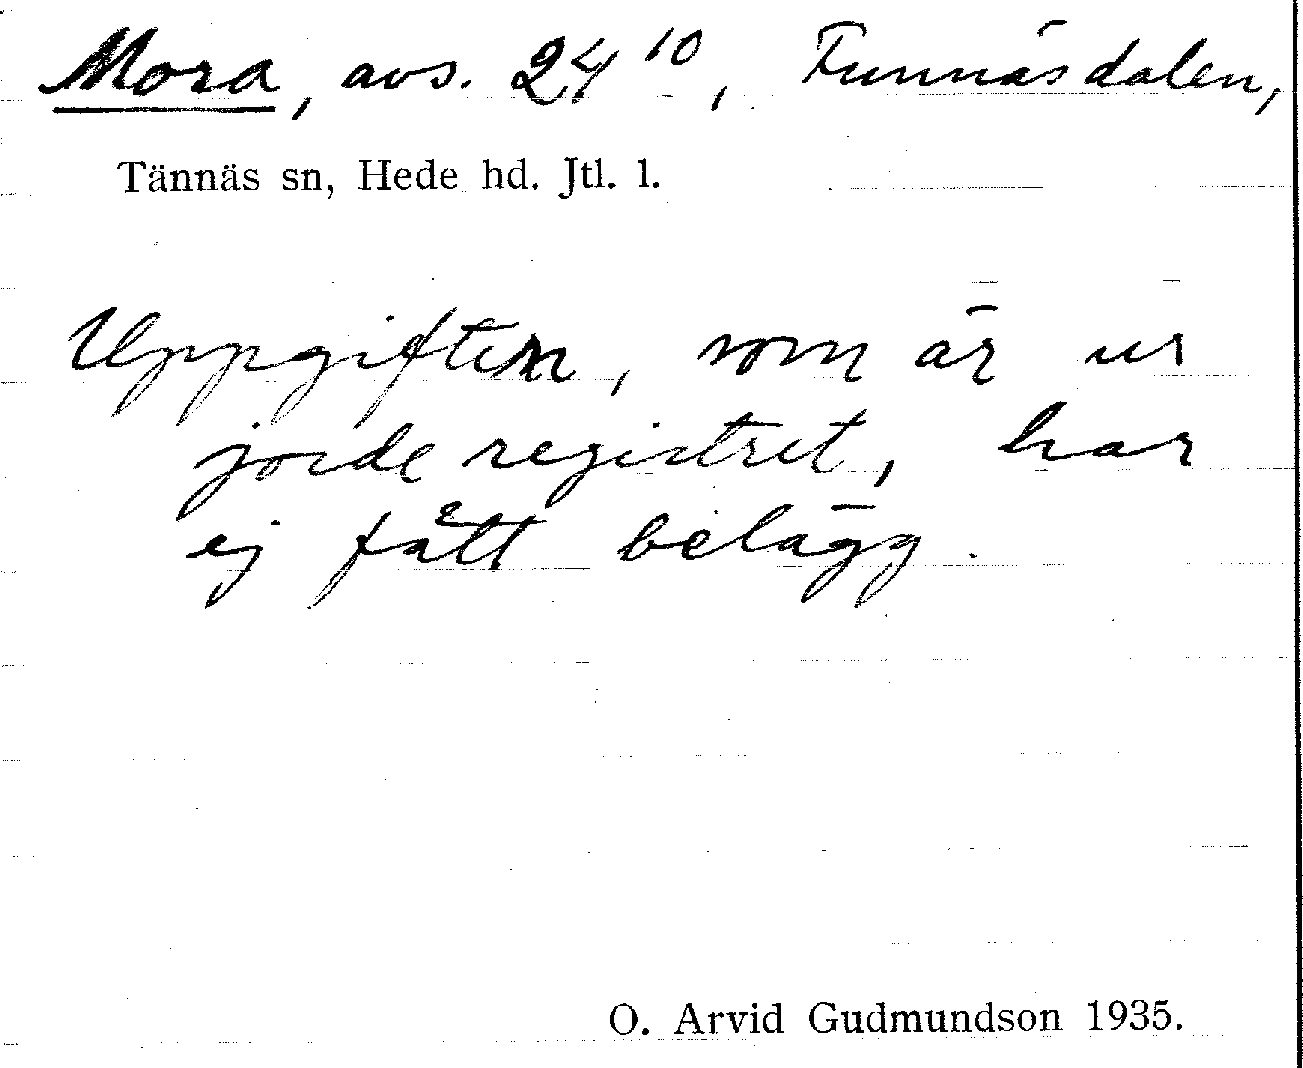 Mora, avs. 24¹⁰, Funnäsdalen,
Tännäs sn, Hede hd. Jtl. l.
Uppgiften, som är ur
jorderegistret, har
ej fått belägg.
O. Arvid Gudmundson 1935.